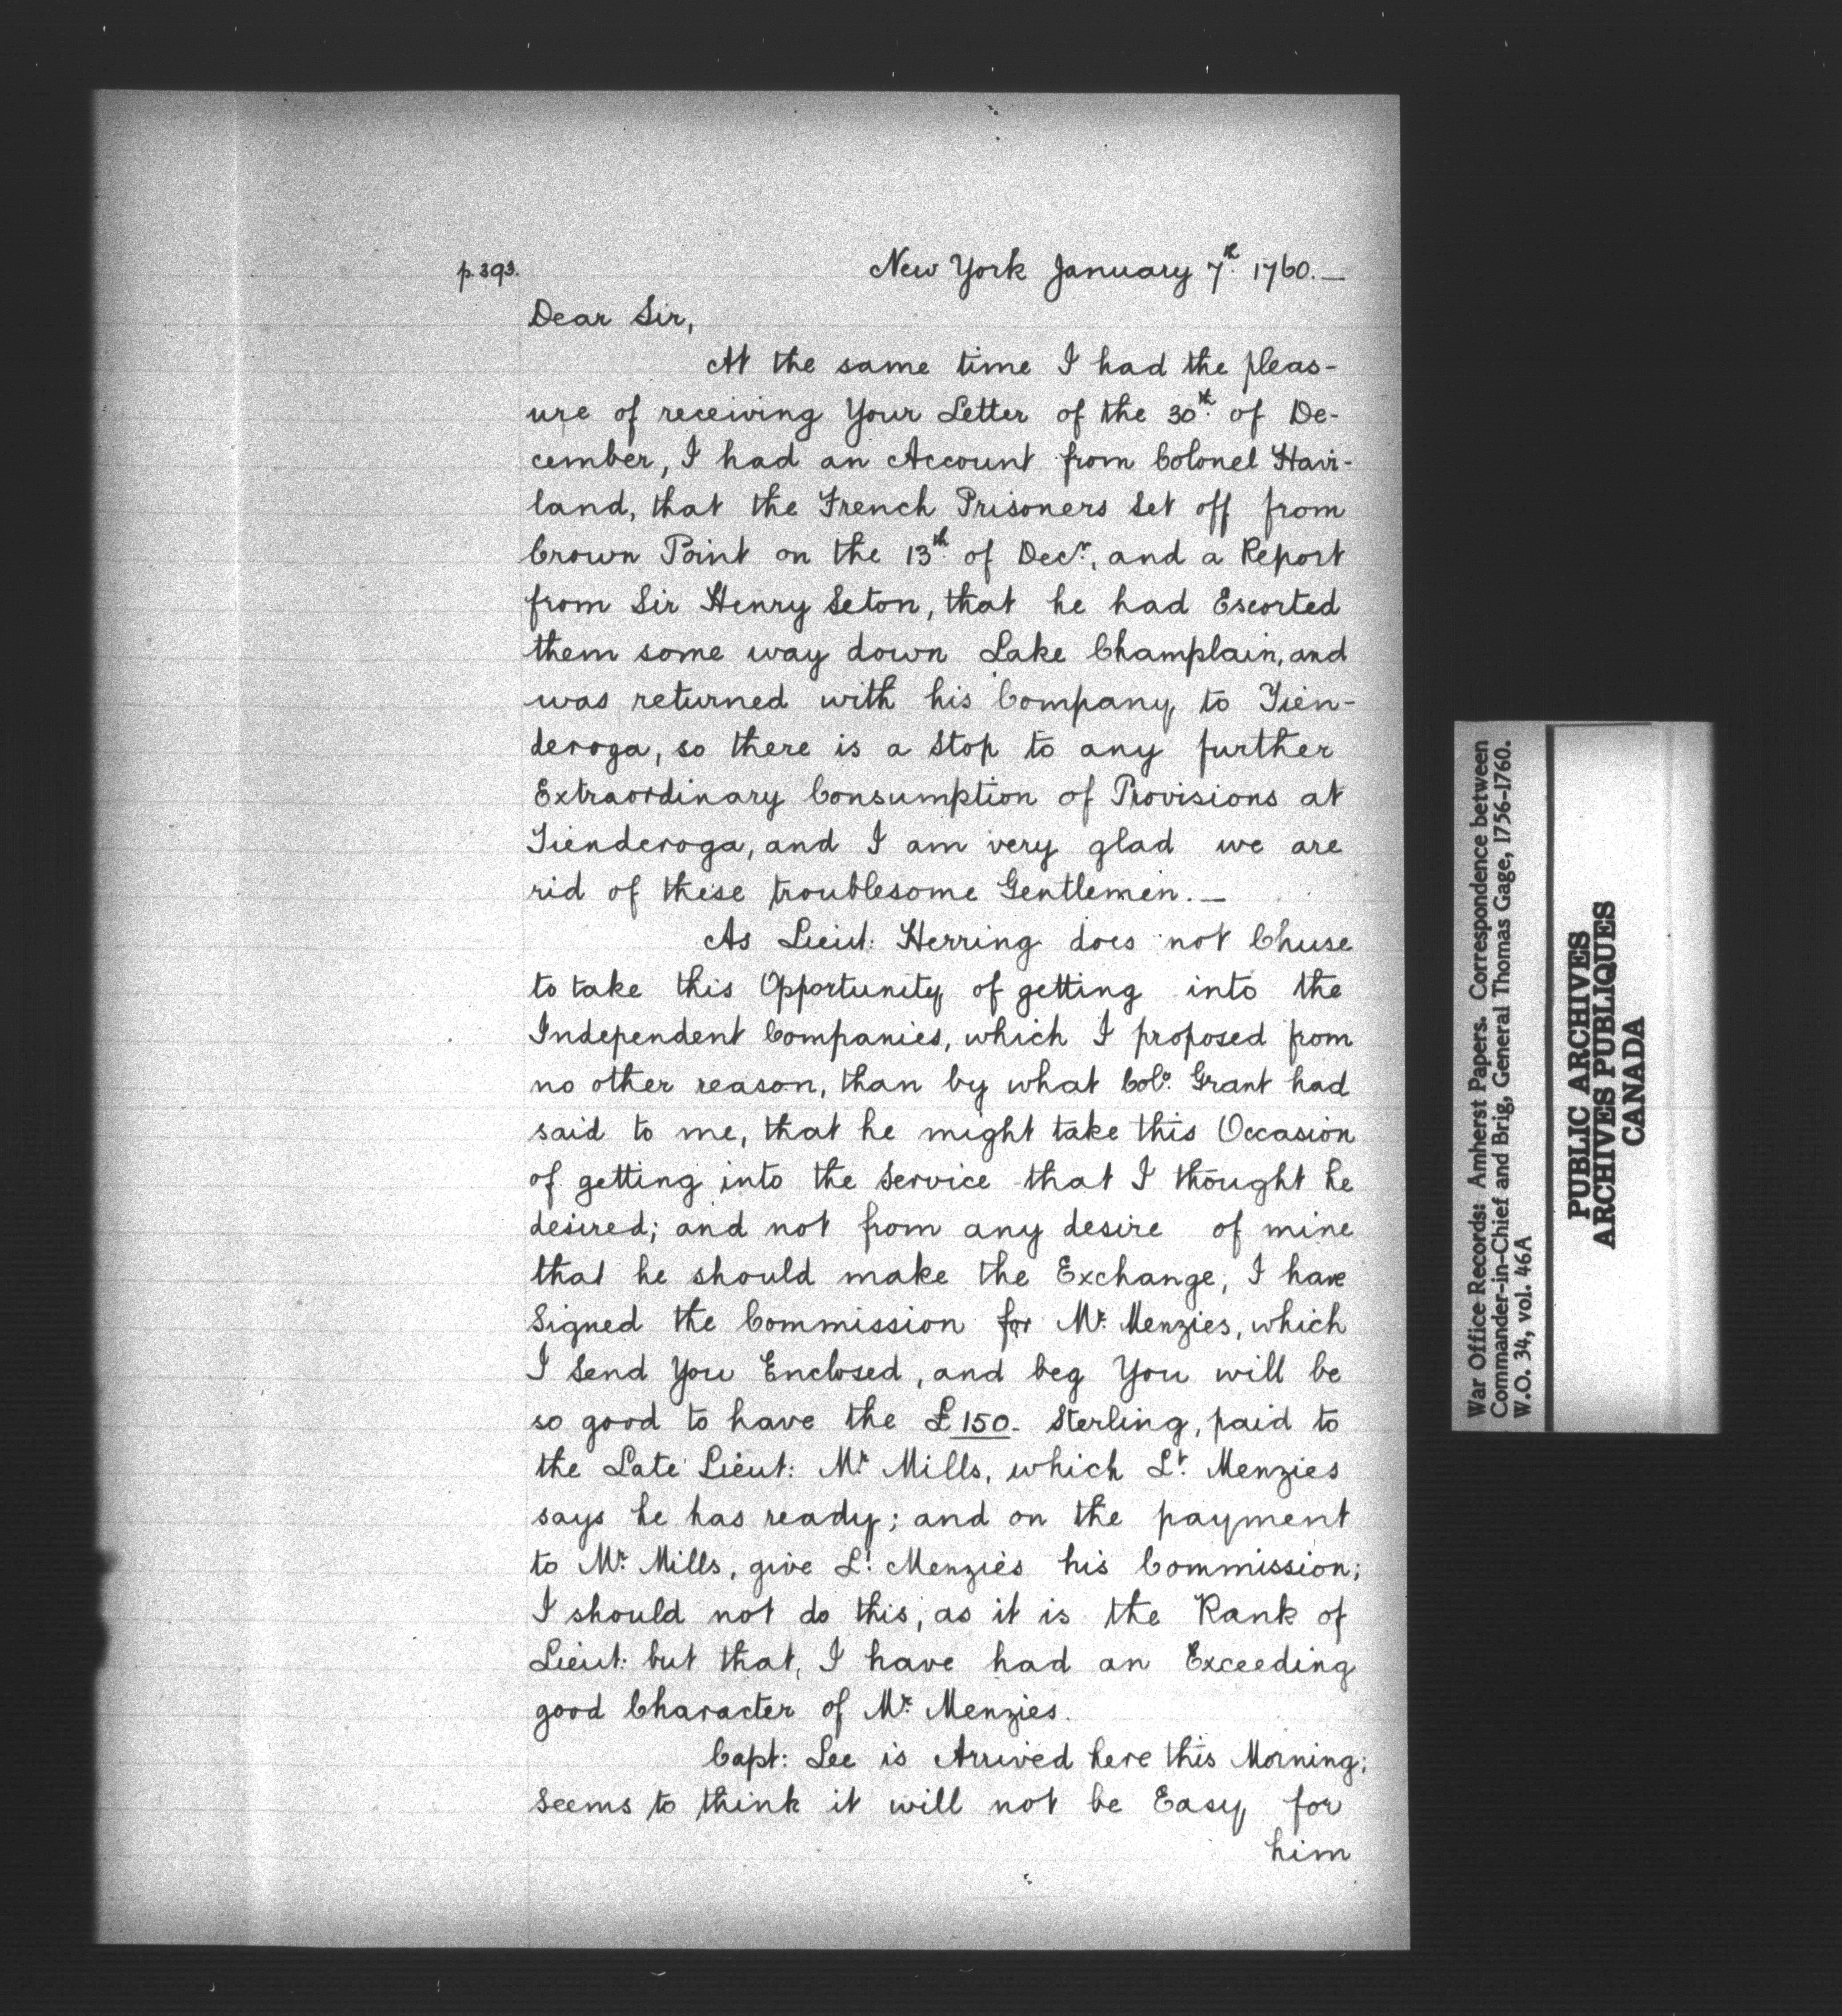 p. 393.
New York January 7th. 1760.—
Dear Sir,
At the same time I had the pleas-
ure of receiving Your Letter of the 30th. of De-
cember, I had an Account from Colonel Havi-
land, that the French Prisoners Set off from
Crown Point on the 13th. of Decr., and a Report
from Sir Henry Seton, that he had Escorted
them some way down Lake Champlain, and
was returned with his Company to Tien-
deroga, so there is a Stop to any further
Extraordinary Consumption of Provisions at
Tienderoga, and I am very glad we are
rid of these troublesome Gentlemen.—
As Lieut: Herring does not Chuse
to take this Opportunity of getting into the
Independent Companies, which I proposed from
no other reason, than by what Colo. Grant had
said to me, that he might take this Occasion
of getting into the Service that I thought he
desired; and not from any desire of mine
that he should make the Exchange, I have
Signed the Commission for Mr. Menzies, which
I Send You Enclosed, and beg You will be
so good to have the £150. Sterling, paid to
the Late Lieut: Mr. Mills, which Lt. Menzies
says he has ready; and on the payment
to Mr. Mills, give Lt. Menzies his Commission;
I should not do this, as it is the Rank of
Lieut: but that, I have had an Exceeding
good Character of Mr. Menzies.
Capt: Lee is Arrived here this Morning;
Seems to think it will not be Easy for
him
War Office Records: Amherst Papers. Correspondence between
Commander-in-Chief and Brig, General Thomas Gage, 1756-1760.
W.O. 34, vol. 46A
PUBLIC ARCHIVES
ARCHIVES PUBLIQUES
CANADA